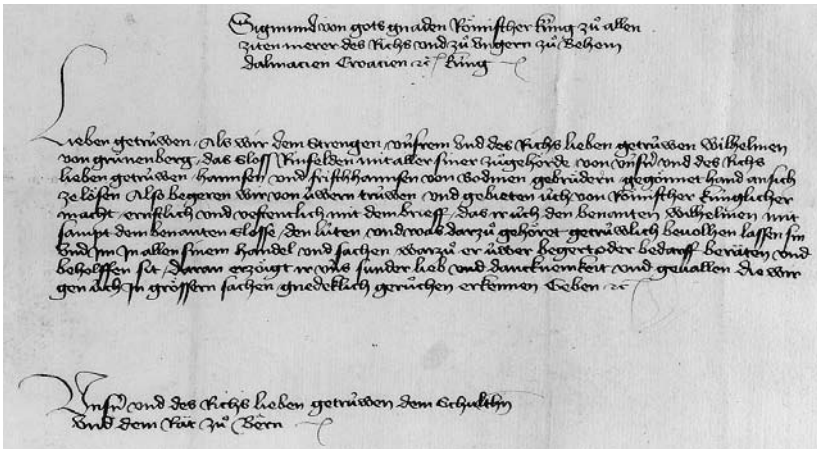 Sigmund von gots gnaden Römischer kung zů allen
ziten merer des Richs vnd zů vngern zů Behem
dalmacien Croacien ꝛc kung
Lieben getrůwen Als wir dem strengen vnsrem vnd des Richs lieben getrůwen Wilhelmen
von grůnenberg das Sloss Rinfelden mit aller siner zůgehörde von vnsrn vnd des Richs
lieben getrůwen hannsen vnd frischhannsen von Bodmen gebrůdern gegönnet hand an sich
ze lösen Also begeren wir von ůwern trůwen vnd gebieten ůch von Römischer kunglicher
macht ernstlich vnd vestentlich mit dem brieff das ir ůch den benanten Wilhelmen mit
sampt dem benanten Slosse den lůten vnd was darzů gehöret getrůwlich beuolhen lassen sin
vnd jm jn allen sinem handel vnd sachen warzů er ůwer begert oder bedarff beräten vnd
beholffen sit daran erzöigt ir vns sunder lieb vnd dancknemkeit vnd geuallen die wir
gen ůch jn grössern sachen gnedeklich gerůchen erkennen Geben ꝛc
Vnsrn vnd des Richs lieben getrůwen dem Schulthn
vnd dem Rät zů Bern